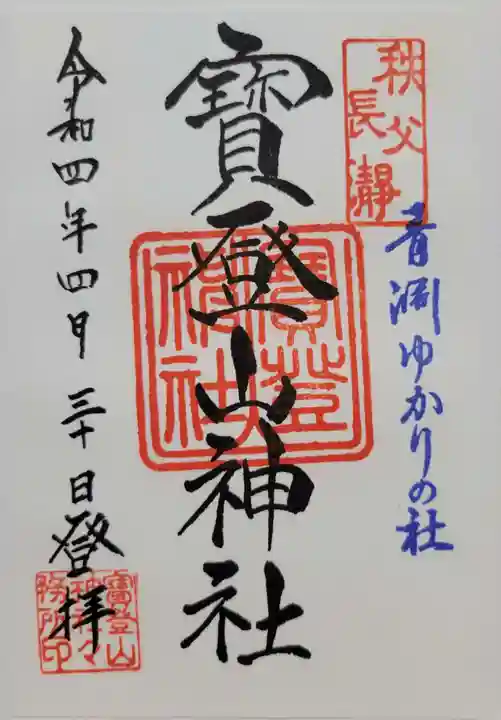 秩父
長瀞
青渊ゆかりの社
寳登山神社
寳登
神社
令和四年四月三十日登拝
寳登山
神社々
務所印